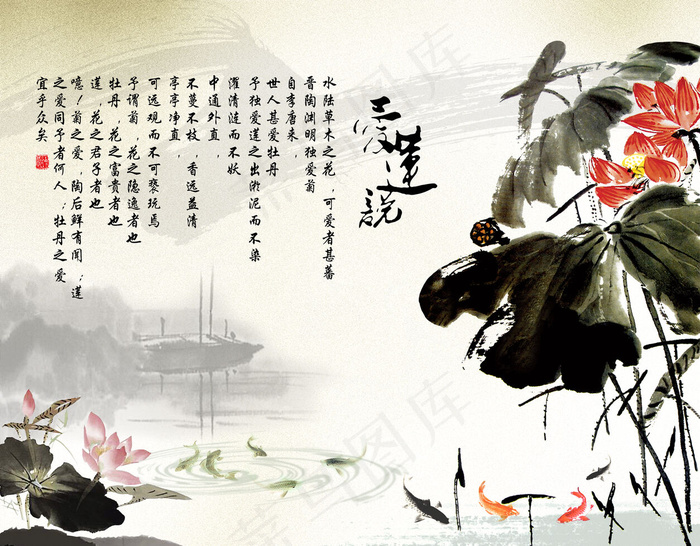 爱莲说
水陆草木之花，可爱者甚蕃
晋陶渊明独爱菊
自李唐来，
世人甚爱牡丹
予独爱莲之出淤泥而不染
濯清涟而不妖
中通外直，
不蔓不枝，香远益清
亭亭净直，
可远观而不可亵玩焉
予谓菊，花之隐逸者也
牡丹，花之富贵者也
莲，花之君子者也
噫！菊之爱，陶后鲜有闻；莲
之爱同予者何人；牡丹之爱
宜乎众矣